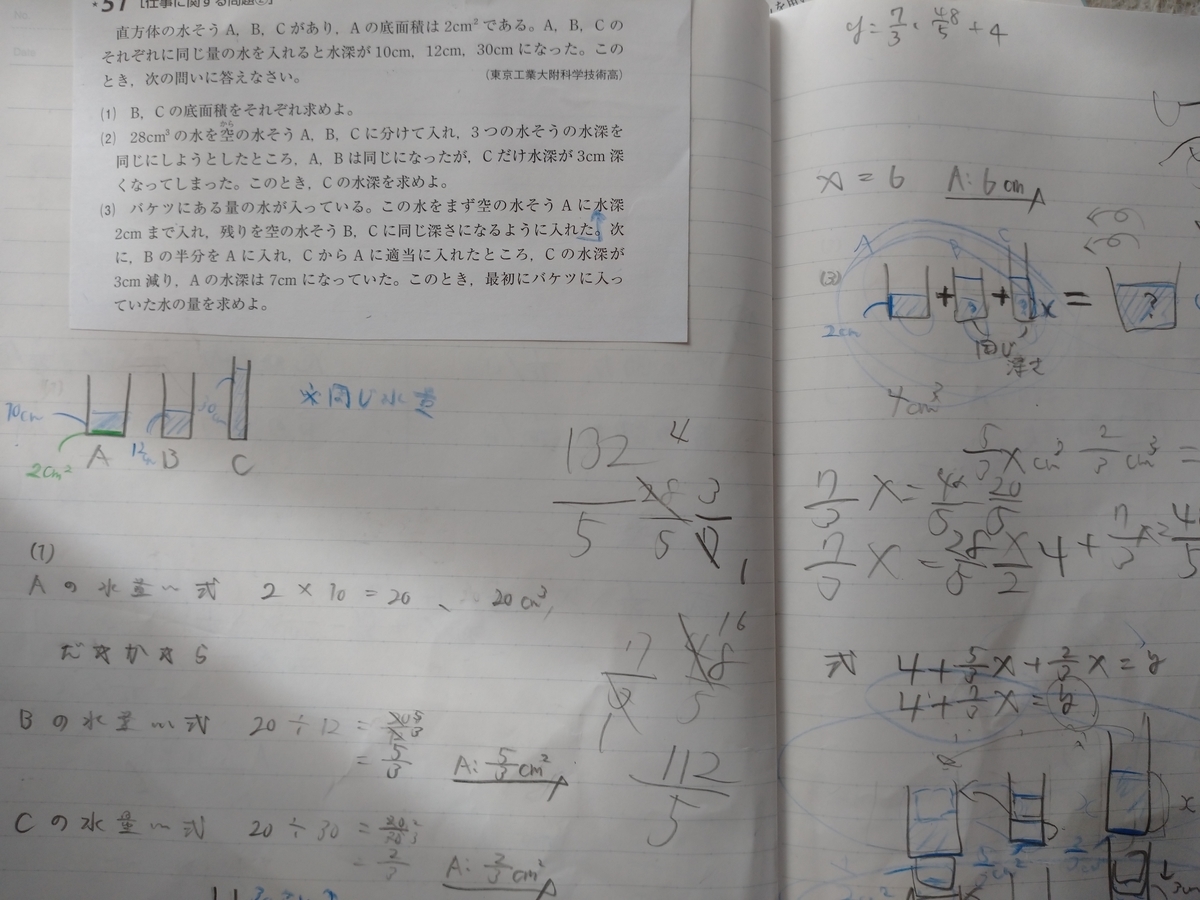 *57 [仕事に関する問題②]
直方体の水そう A, B, C があり, A の底面積は 2cm² である。A, B, C の
それぞれに同じ量の水を入れると水深が 10cm, 12cm, 30cm になった。この
とき, 次の問いに答えなさい。
(東京工業大附科学技術高)
(1) B, C の底面積をそれぞれ求めよ。
(2) 28cm³ の水を空の水そう A, B, C に分けて入れ, 3つの水そうの水深を
から
同じにしようとしたところ, A, B は同じになったが, C だけ水深が 3cm 深
くなってしまった。このとき, C の水深を求めよ。
(3) バケツにある量の水が入っている。この水をまず空の水そう A に水深
2cm まで入れ, 残りを空の水そう B, C に同じ深さになるように入れた。次
に, B の半分を A に入れ, C から A に適当に入れたところ, C の水深が
3cm 減り, A の水深は 7cm になっていた。このとき, 最初にバケツに入っ
ていた水の量を求めよ。
10cm
2cm²
A
12cm
B
C
※同じ水量
132/5
4
28/5
3
1
(1)
Aの水量〜式 2×10=20、20cm³,
だ☆か☆ら
Bの水量〜式 20÷12=
= 5/3
A: 5/3 cm²
Cの水量〜式 20÷30=
= 2/3
A: 2/3 cm²
16
112/5
y = 7/3 × 48/5 + 4
x = 6 A: 6cm
(3)
A
B
C
2cm
+ + x = ?
同じ
深さ
4cm³
5/3 x cm³ 2/3 cm³ =
7/3 x = 28/5
4 + 7/3 x =
式 4 + 5/3 x + 2/3 x = y
4 + 7/3 x = y
x
3cm